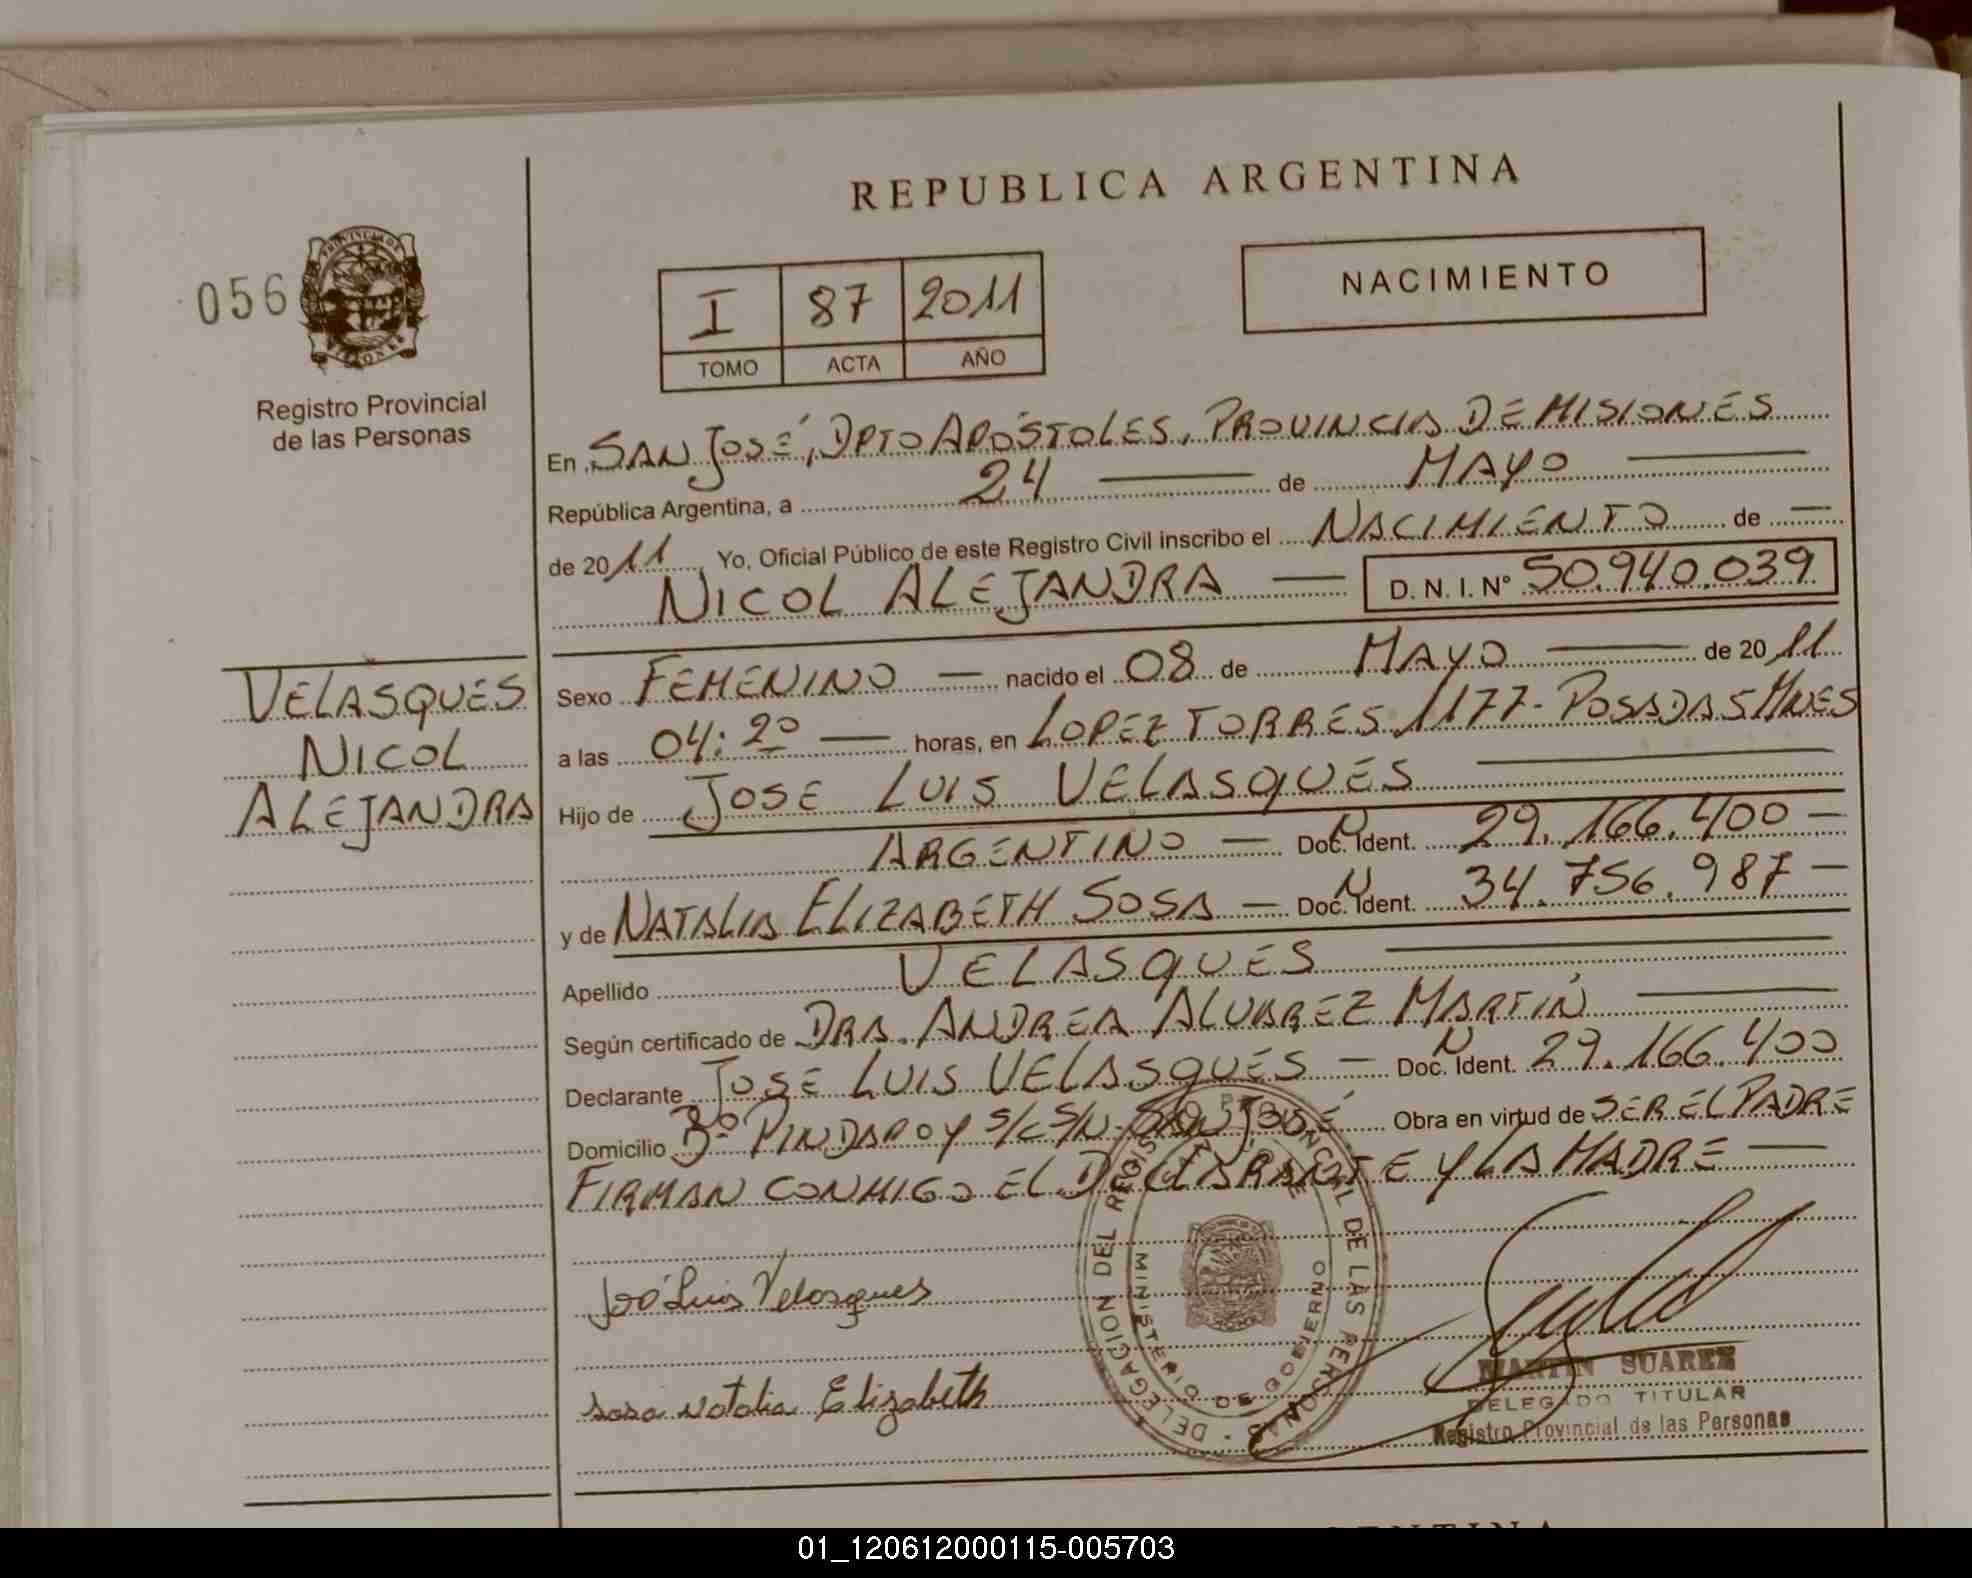 REPUBLICA ARGENTINA
056
PROVINCIA DE MISIONES
Registro Provincial
de las Personas
I 87 2011
TOMO ACTA AÑO
NACIMIENTO
En SAN JOSÉ, DPTO APÓSTOLES, PROVINCIA DE MISIONES
República Argentina, a 24 — de MAYO —
de 2011 Yo, Oficial Público de este Registro Civil inscribo el NACIMIENTO de —
NICOL ALEJANDRA — D. N. I. N° 50.940.039
VELASQUES
NICOL
ALEJANDRA
Sexo FEMENINO — nacido el 08 de MAYO — de 2011
a las 04:20 — horas, en LOPEZ TORRES 1177- POSADAS MNES
Hijo de JOSE LUIS VELASQUES —
ARGENTINO — Doc. N Ident. 29.166.400 —
y de NATALIA ELIZABETH SOSA — Doc. N Ident. 34.756.987 —
Apellido VELASQUES —
Según certificado de DRA. ANDREA ALVAREZ MARTÍN —
Declarante JOSE LUIS VELASQUES — Doc. N Ident. 29.166.400
Domicilio Bº PINDAPOY S/C S/N- SAN JOSÉ Obra en virtud de SER EL PADRE
FIRMAN CONMIGO EL DECLARANTE Y LA MADRE —
José Luis Velasques
sosa Natalia Elizabeth
DELEGACION DEL REGISTRO PROVINCIAL DE LAS PERSONAS
MINISTERIO DE GOBIERNO
MARTIN SUAREZ
DELEGADO TITULAR
Registro Provincial de las Personas
01_120612000115-005703